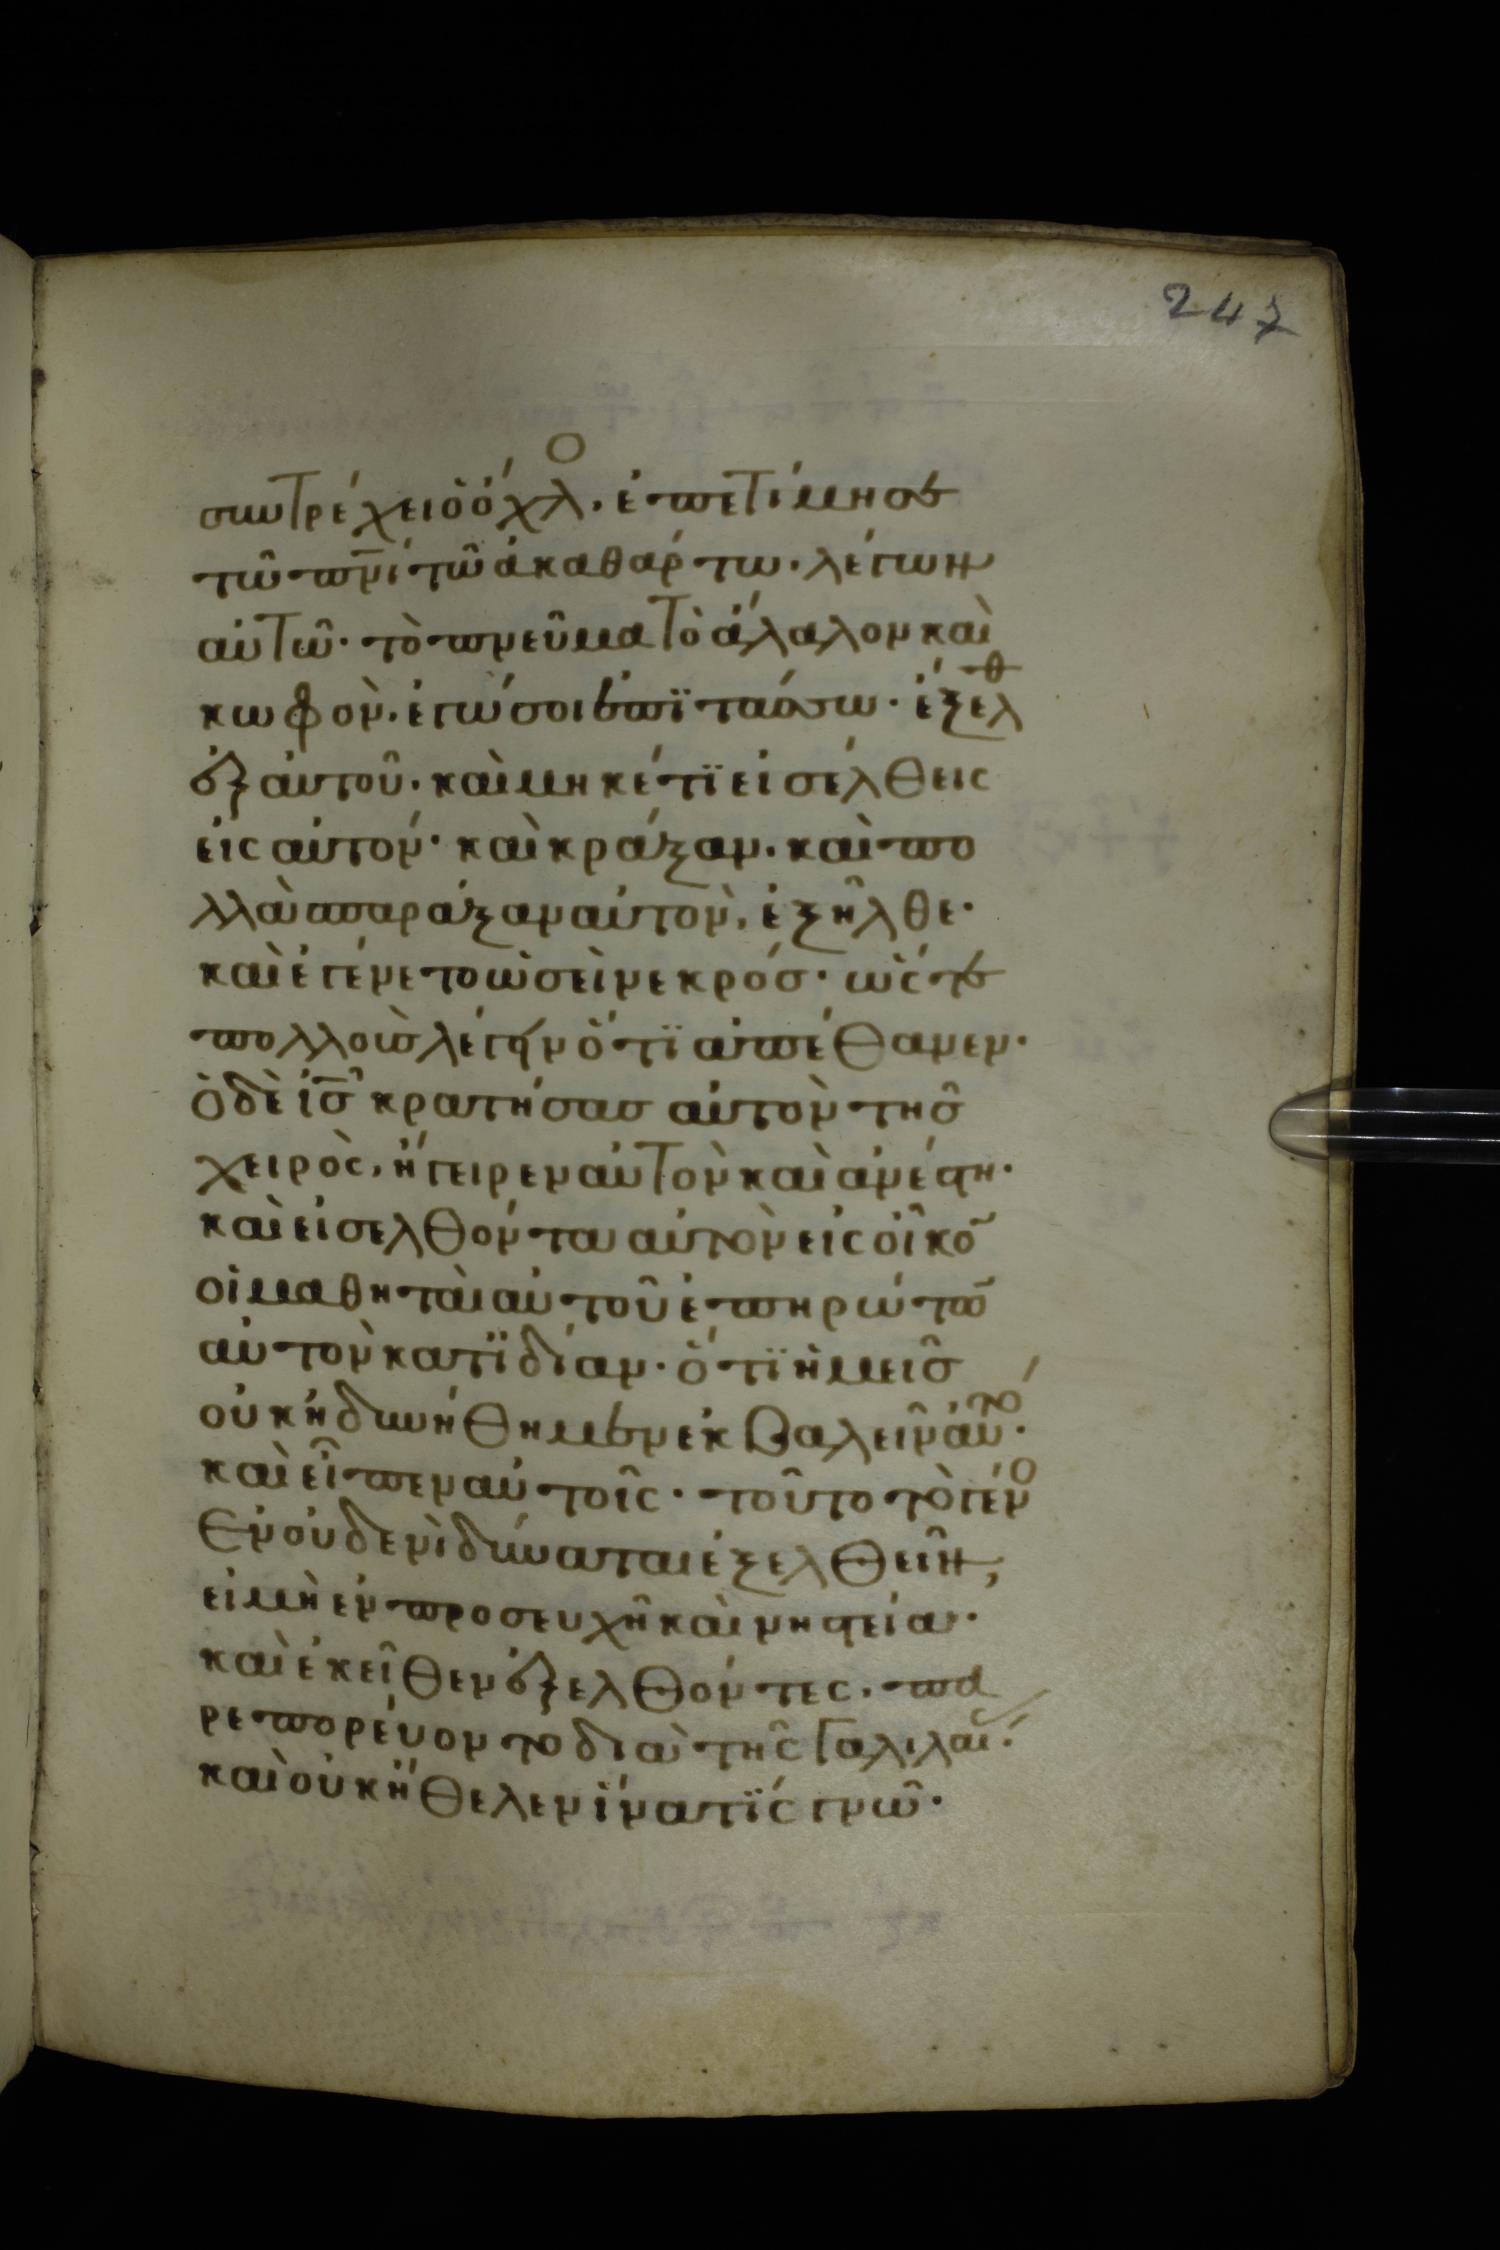 247
συντρέχει ὁ ὄχλο. ἐπετίμησε
τῶ πν̅ι τῶ ἀκαθάρτω. λέγων
αὐτῶ· τὸ πνεῦμα τὸ ἄλαλον καὶ
κωφὸν. ἐγώ σοι ἐπϊτάσσω· ἔξελθ
ἐξ αὐτοῦ. καὶ μηκέτϊ εἰσέλθεις
εἰς αὐτόν· καὶ κράξαν. καὶ πο
λλὰ σπαράξαν αὐτὸν. ἐξῆλθε·
καὶ ἐγένετο ὡσεὶ νεκρόσ· ὡς τε
πολλοὺσ λέγειν ὅτϊ ἀπέθανεν·
ὁ δὲ ι̅σ̅ κρατήσασ αὐτὸν τῆσ
χειρὸς. ἤγειρεν αὐτὸν καὶ ἀνέστη·
καὶ εἰσελθόντα αὐτὸν εἰς οἶκο̅
οἱ μαθηταὶ αὐτοῦ ἐπηρώτω̅
αὐτὸν κατϊδίαν· ὅτϊ ἡμεῖσ
οὐκ ἠδυνήθημεν ἐκβαλεῖν αὐτό·
καὶ εἶπεν αὐτοῖς· τοῦτο τὸ γένο
ἐν οὐδενὶ δύναται ἐξελθεῖν,
εἰ μὴ ἐν προσευχῆ καὶ νηστεία·
καὶ ἐκεῖθεν ἐξελθόντες. πα
ρεπορεύοντο διὰ τῆς Γαλιλαί·
καὶ οὐκ ἤθελεν ἵνα τϊς γνῶ·